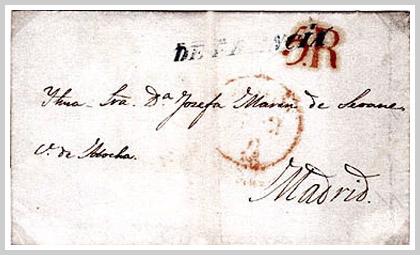 DE FRANCIA
5R
Yltma Sra. Dª Josefa Marin de Seoane
C. de Atocha.
Madrid.